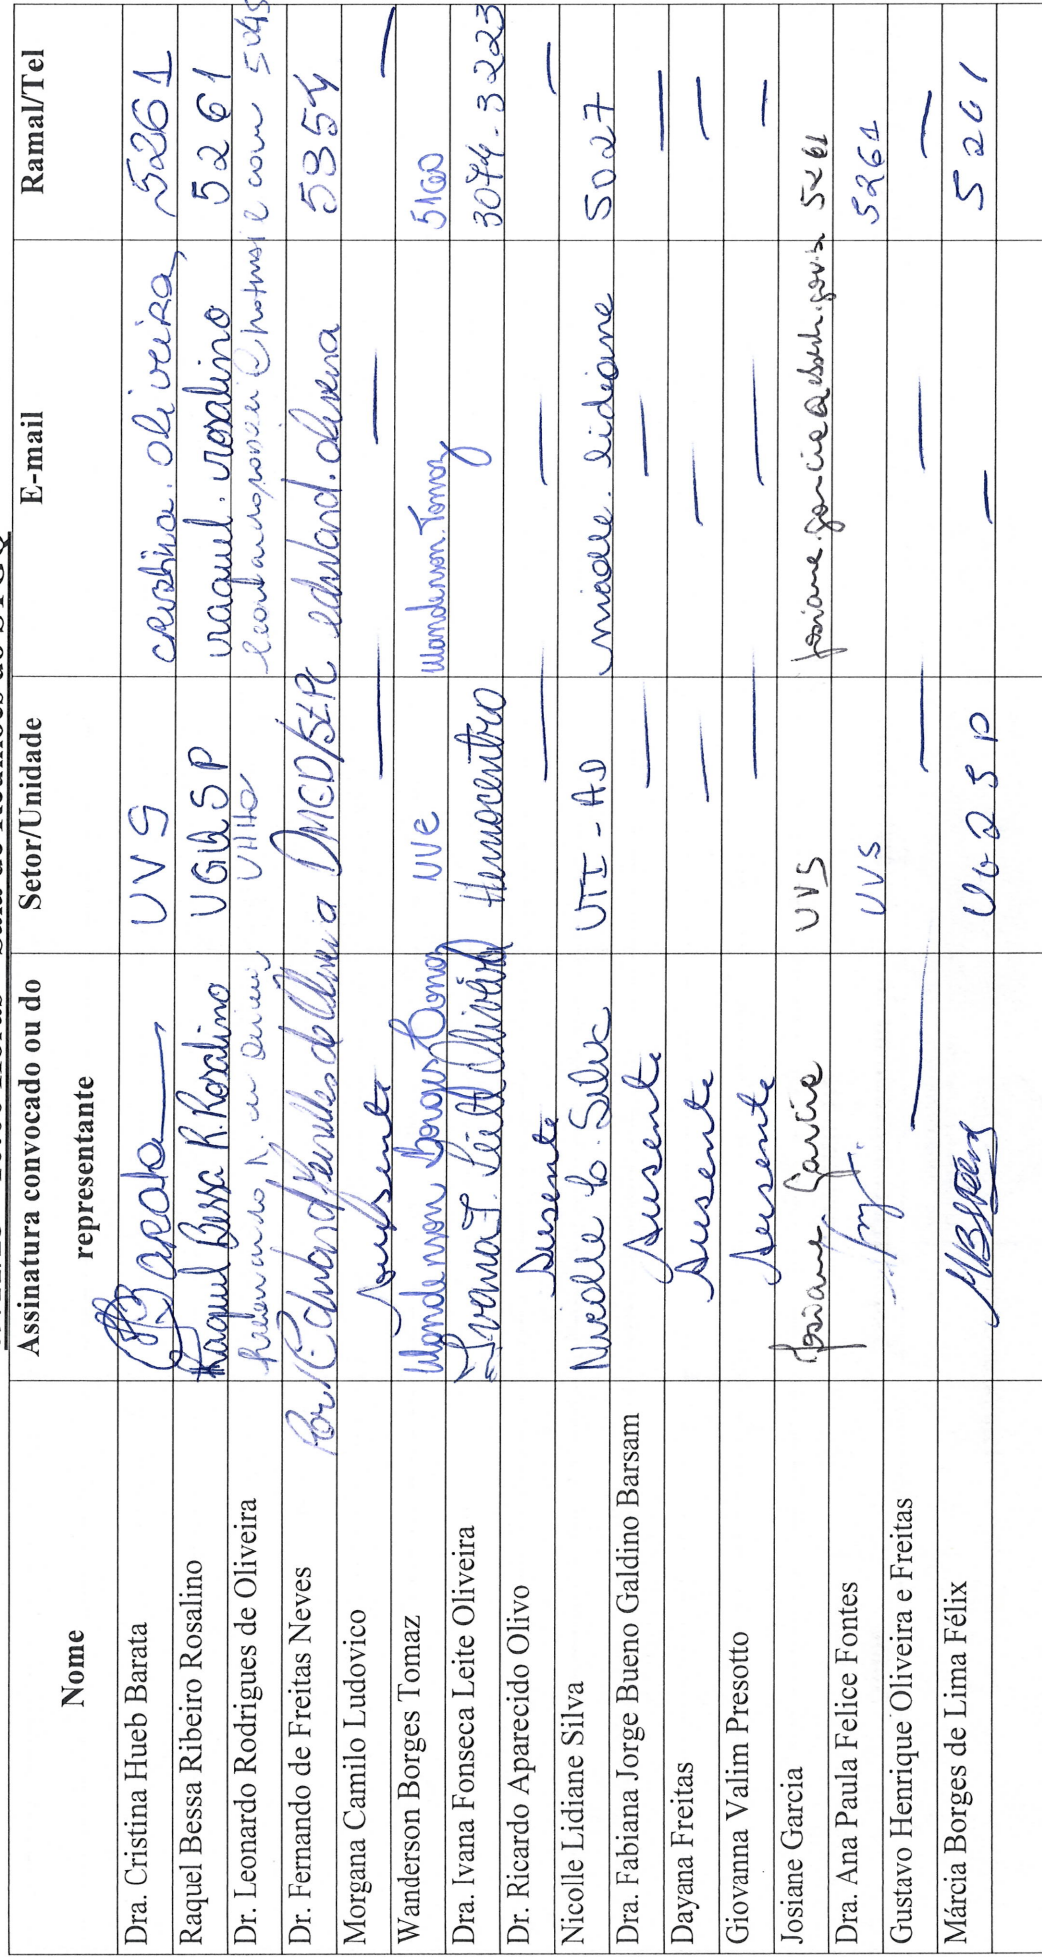 Nome Assinatura convocado ou do representante Setor/Unidade E-mail Ramal/Tel
Dra. Cristina Hueb Barata Barata UVS cristina.oliveira 5261
Raquel Bessa Ribeiro Rosalino Raquel Bessa R. Rosalino UGQSP raquel.rosalino 5261
Dr. Leonardo Rodrigues de Oliveira
Dr. Fernando de Freitas Neves Por/ Eduardo de Oliveira DMED/ eduard.oliveira
Morgana Camilo Ludovico Ausente — — —
Wanderson Borges Tomaz Wanderson Borges Tomaz Wanderson.Tomaz 5160
Dra. Ivana Fonseca Leite Oliveira Ivana F. Leite Oliveira Hemocentro
Dr. Ricardo Aparecido Olivo Ausente — — —
Nicolle Lidiane Silva Nicolle L. Silva UTI-AD nicolle.lidiane 5027
Dra. Fabiana Jorge Bueno Galdino Barsam Ausente — — —
Dayana Freitas Ausente — — —
Giovanna Valim Presotto Ausente — — —
Josiane Garcia Josiane Garcia UVS 5261
Dra. Ana Paula Felice Fontes UVS 5261
Gustavo Henrique Oliveira e Freitas — — — —
Márcia Borges de Lima Félix — 5261